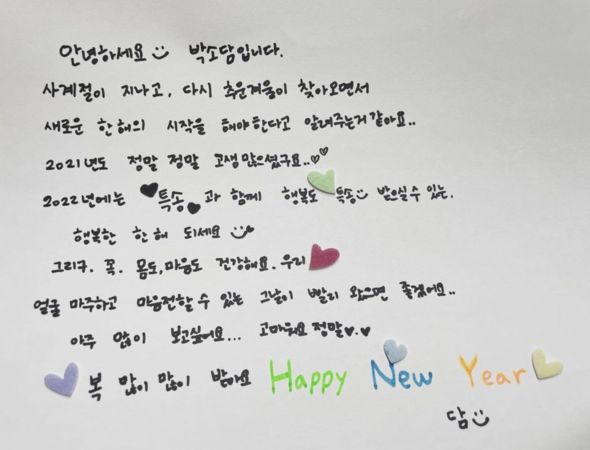 안녕하세요 박소담입니다.
사계절이 지나고, 다시 추운겨울이 찾아오면서
새로운 한해의 시작을 해야한다고 알려주는거같아요..
2021년도 정말 정말 고생 많으셨구요..♡♡
2022년에는 ♥특송♥과 함께 행복도 특송 받으실수 있는.
행복한 한해 되세요
그리구. 꼭. 몸도,마음도 건강해요. 우리
얼굴 마주하고 마음전할 수 있는 그날이 빨리 왔으면 좋겠어요..
아주 많이 보고싶어요... 고마워요 정말♥.♥
복 많이 많이 받아요 Happy New Year
담